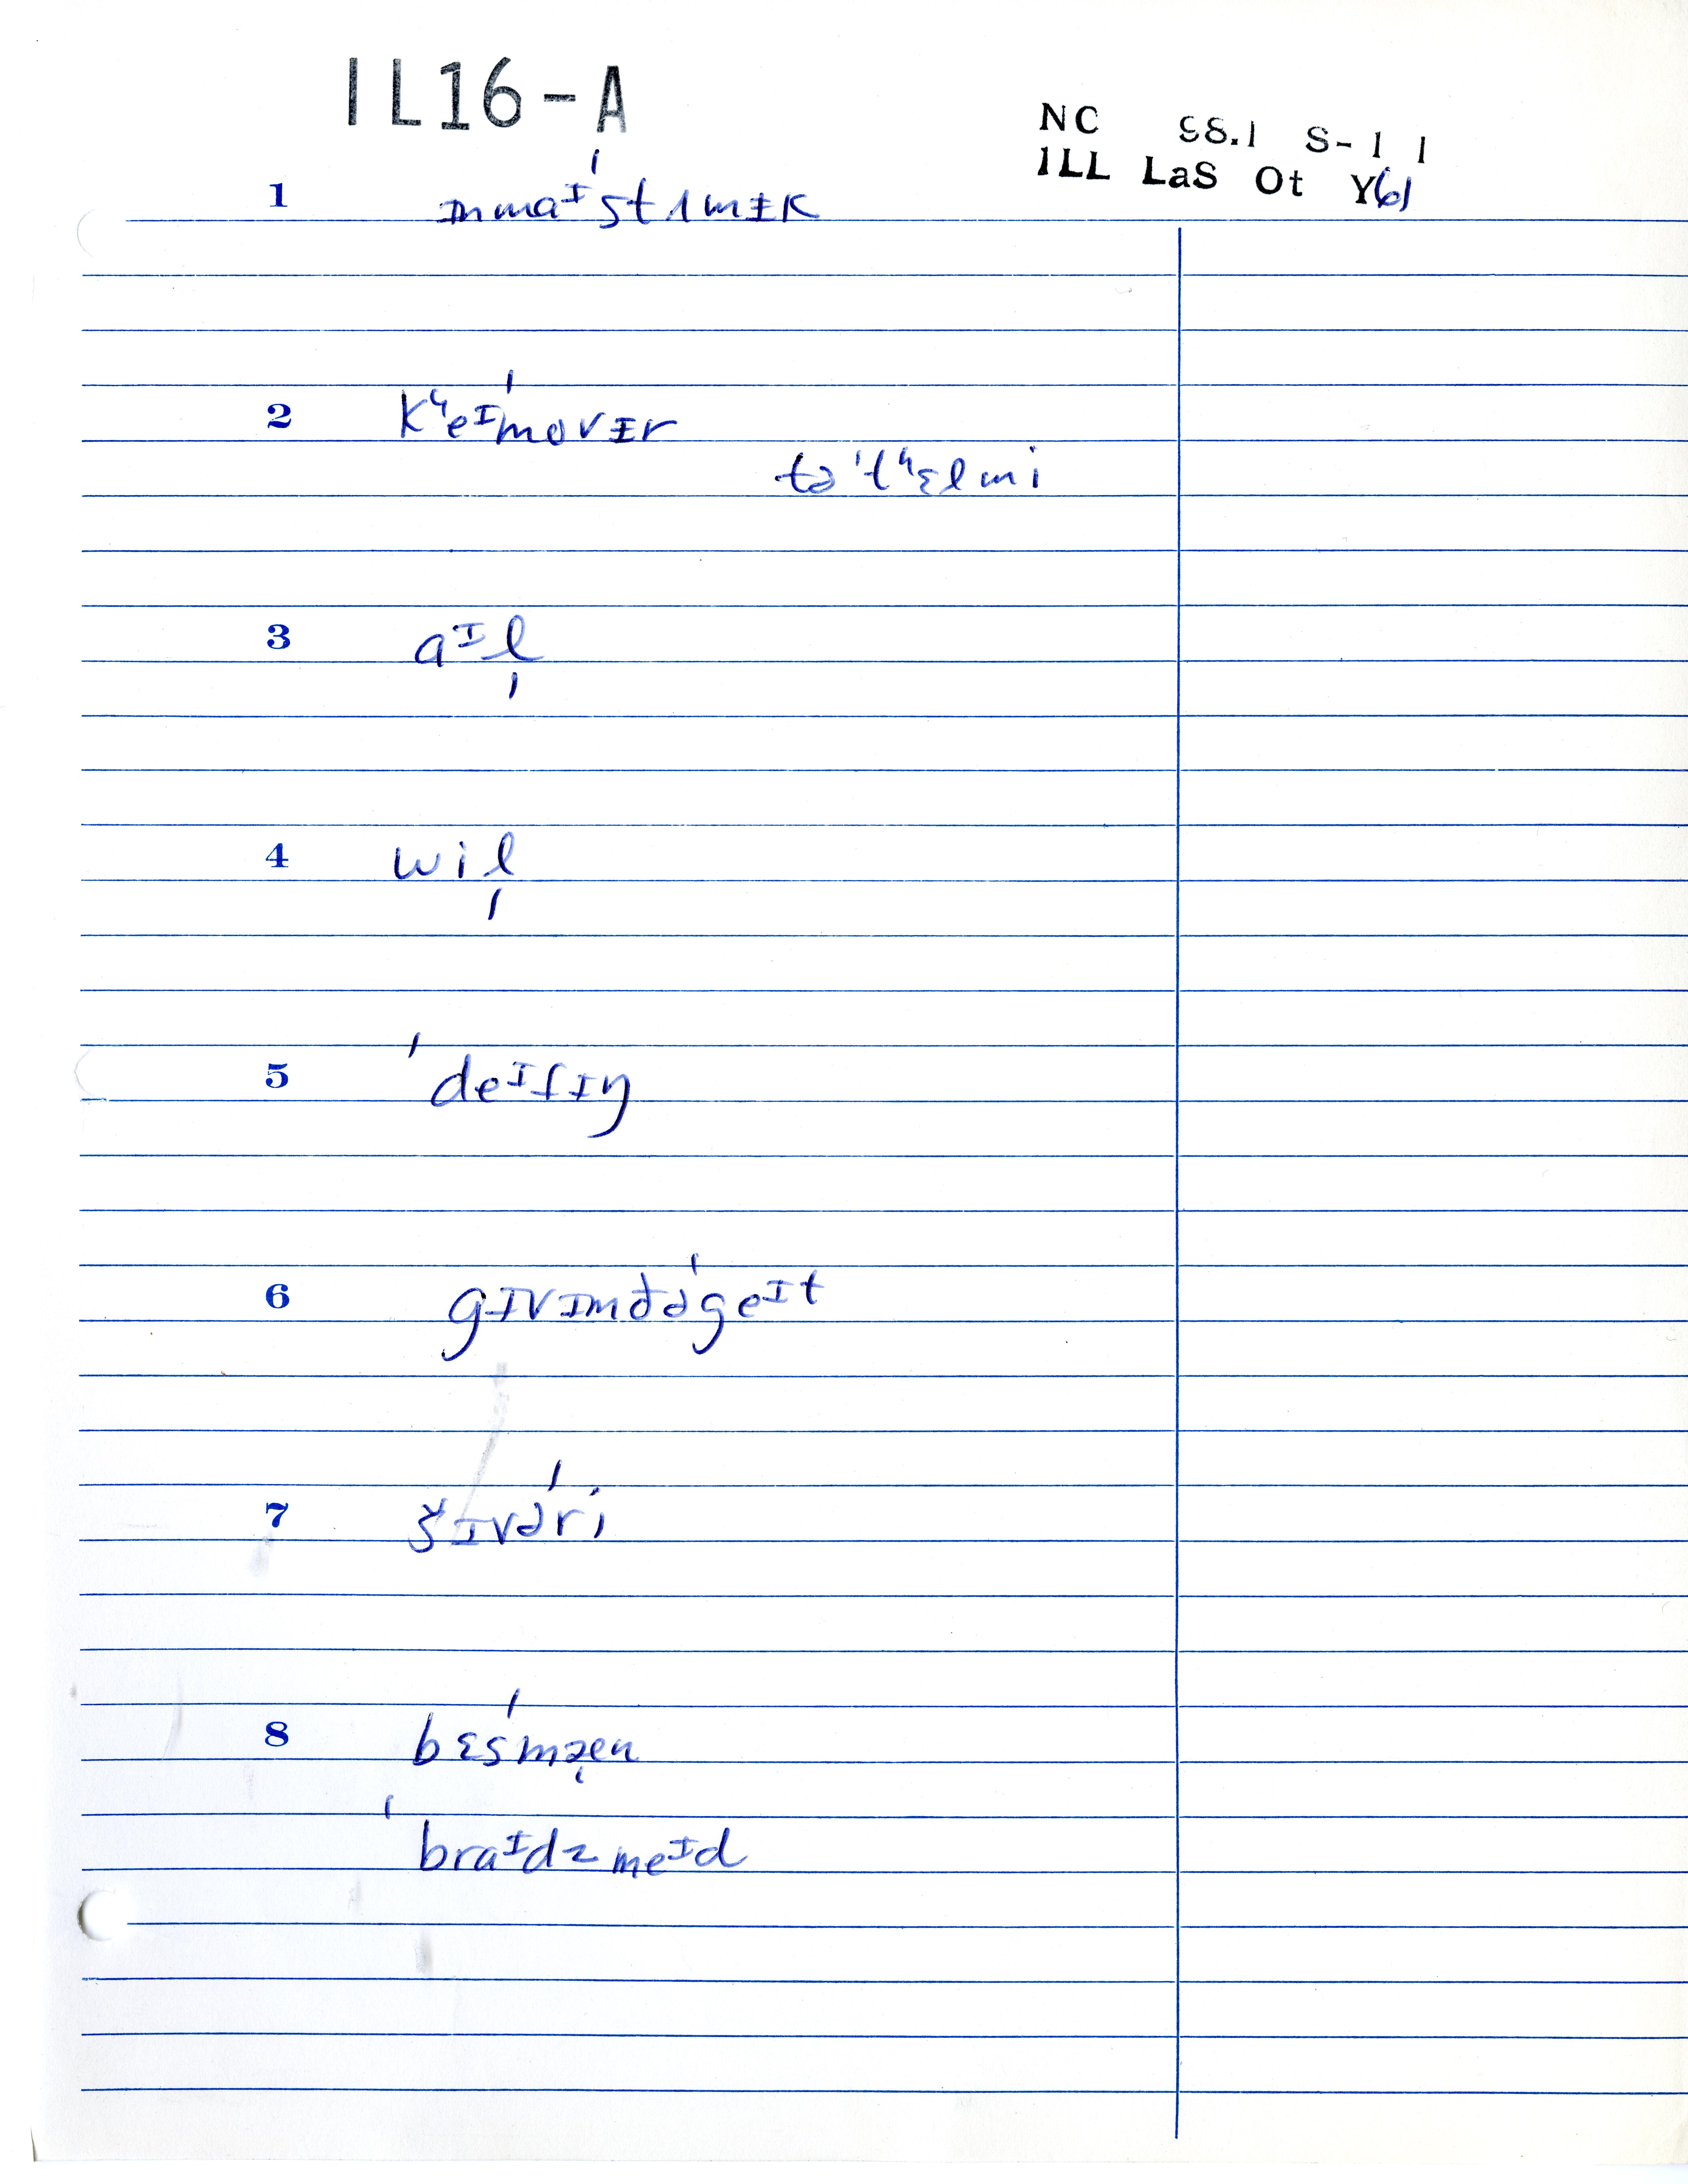 IL16-A
NC 98.1 S-1 1
ILL LaS Ot Y61
1 ɪnmaᴵˈstʌmɪk
2 kʰeᴵˈmovɪr
tə ˈtʰɛlmi
3 aᴵl̩
4 wil̩
5 ˈdeᴵʃɪŋ
6 gɪvɪmðəˈgeᴵt
7 šɪvəˈri
8 ˈbɛsmæn
ˈbraᴵdzmeᴵd